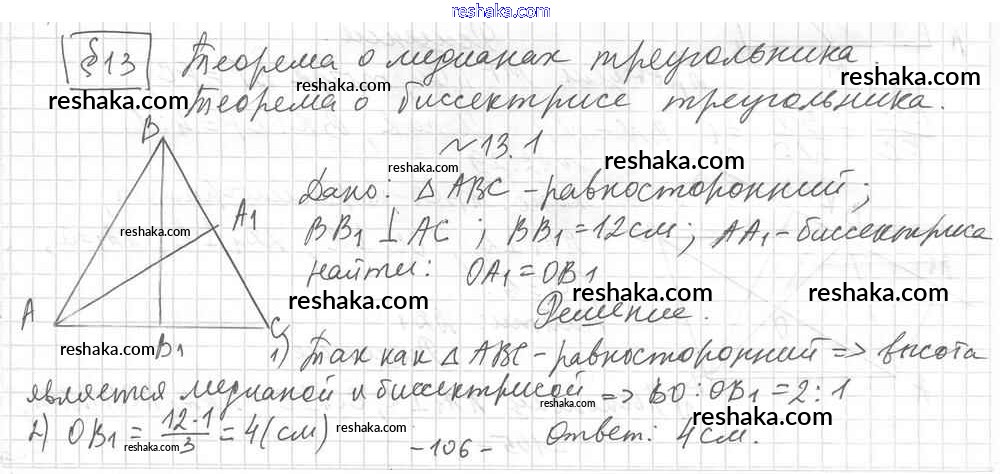 reshaka.com
§13 Теорема о медианах треугольника.
reshaka.com
Теорема о биссектрисе треугольника.
reshaka.com reshaka.com
№13.1
B
reshaka.com reshaka.com
Дано: △ABC - равносторонний;
A1
reshaka.com
BB1 ⊥ AC ; BB1 = 12 см; AA1 - биссектриса
Найти: OA1 = OB1
reshaka.com reshaka.com reshaka.com
A
Решение.
B1 C
reshaka.com
1) Так как △ABC - равносторонний => высота
является медианой и биссектрисой => BO : OB1 = 2 : 1
reshaka.com reshaka.com
2) OB1 = 12·1/3 = 4 (см)
reshaka.com reshaka.com
Ответ: 4 см.
-106-